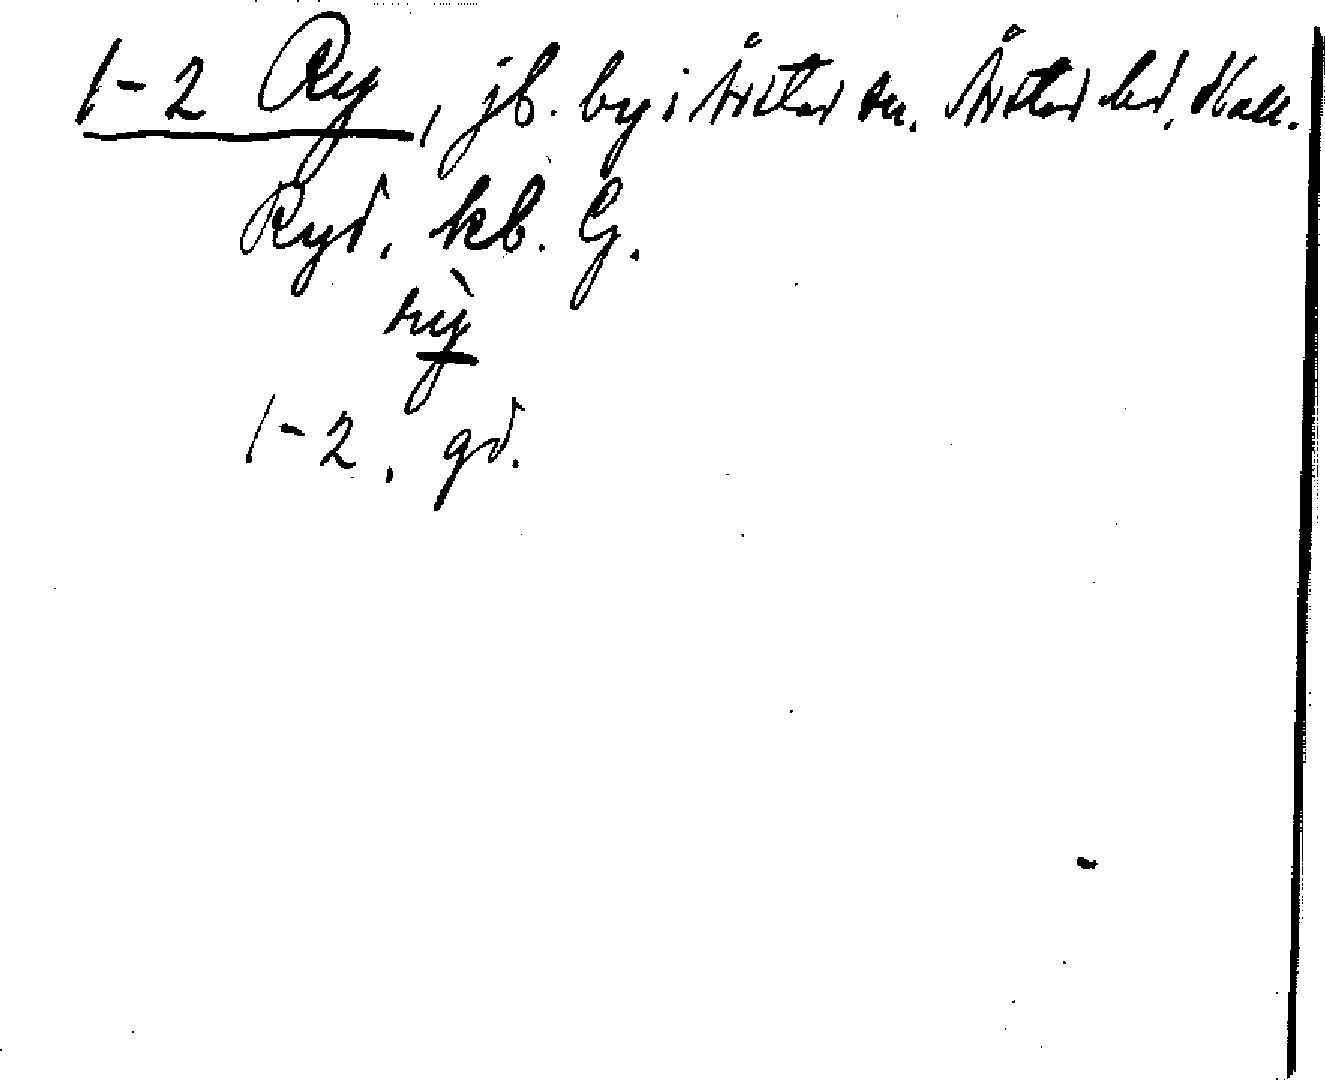 1-2 Ry, jb. by i Årstad sn. Årstad hd, Hall.
Ryd, kb. G.
rỳ
1-2, gd.